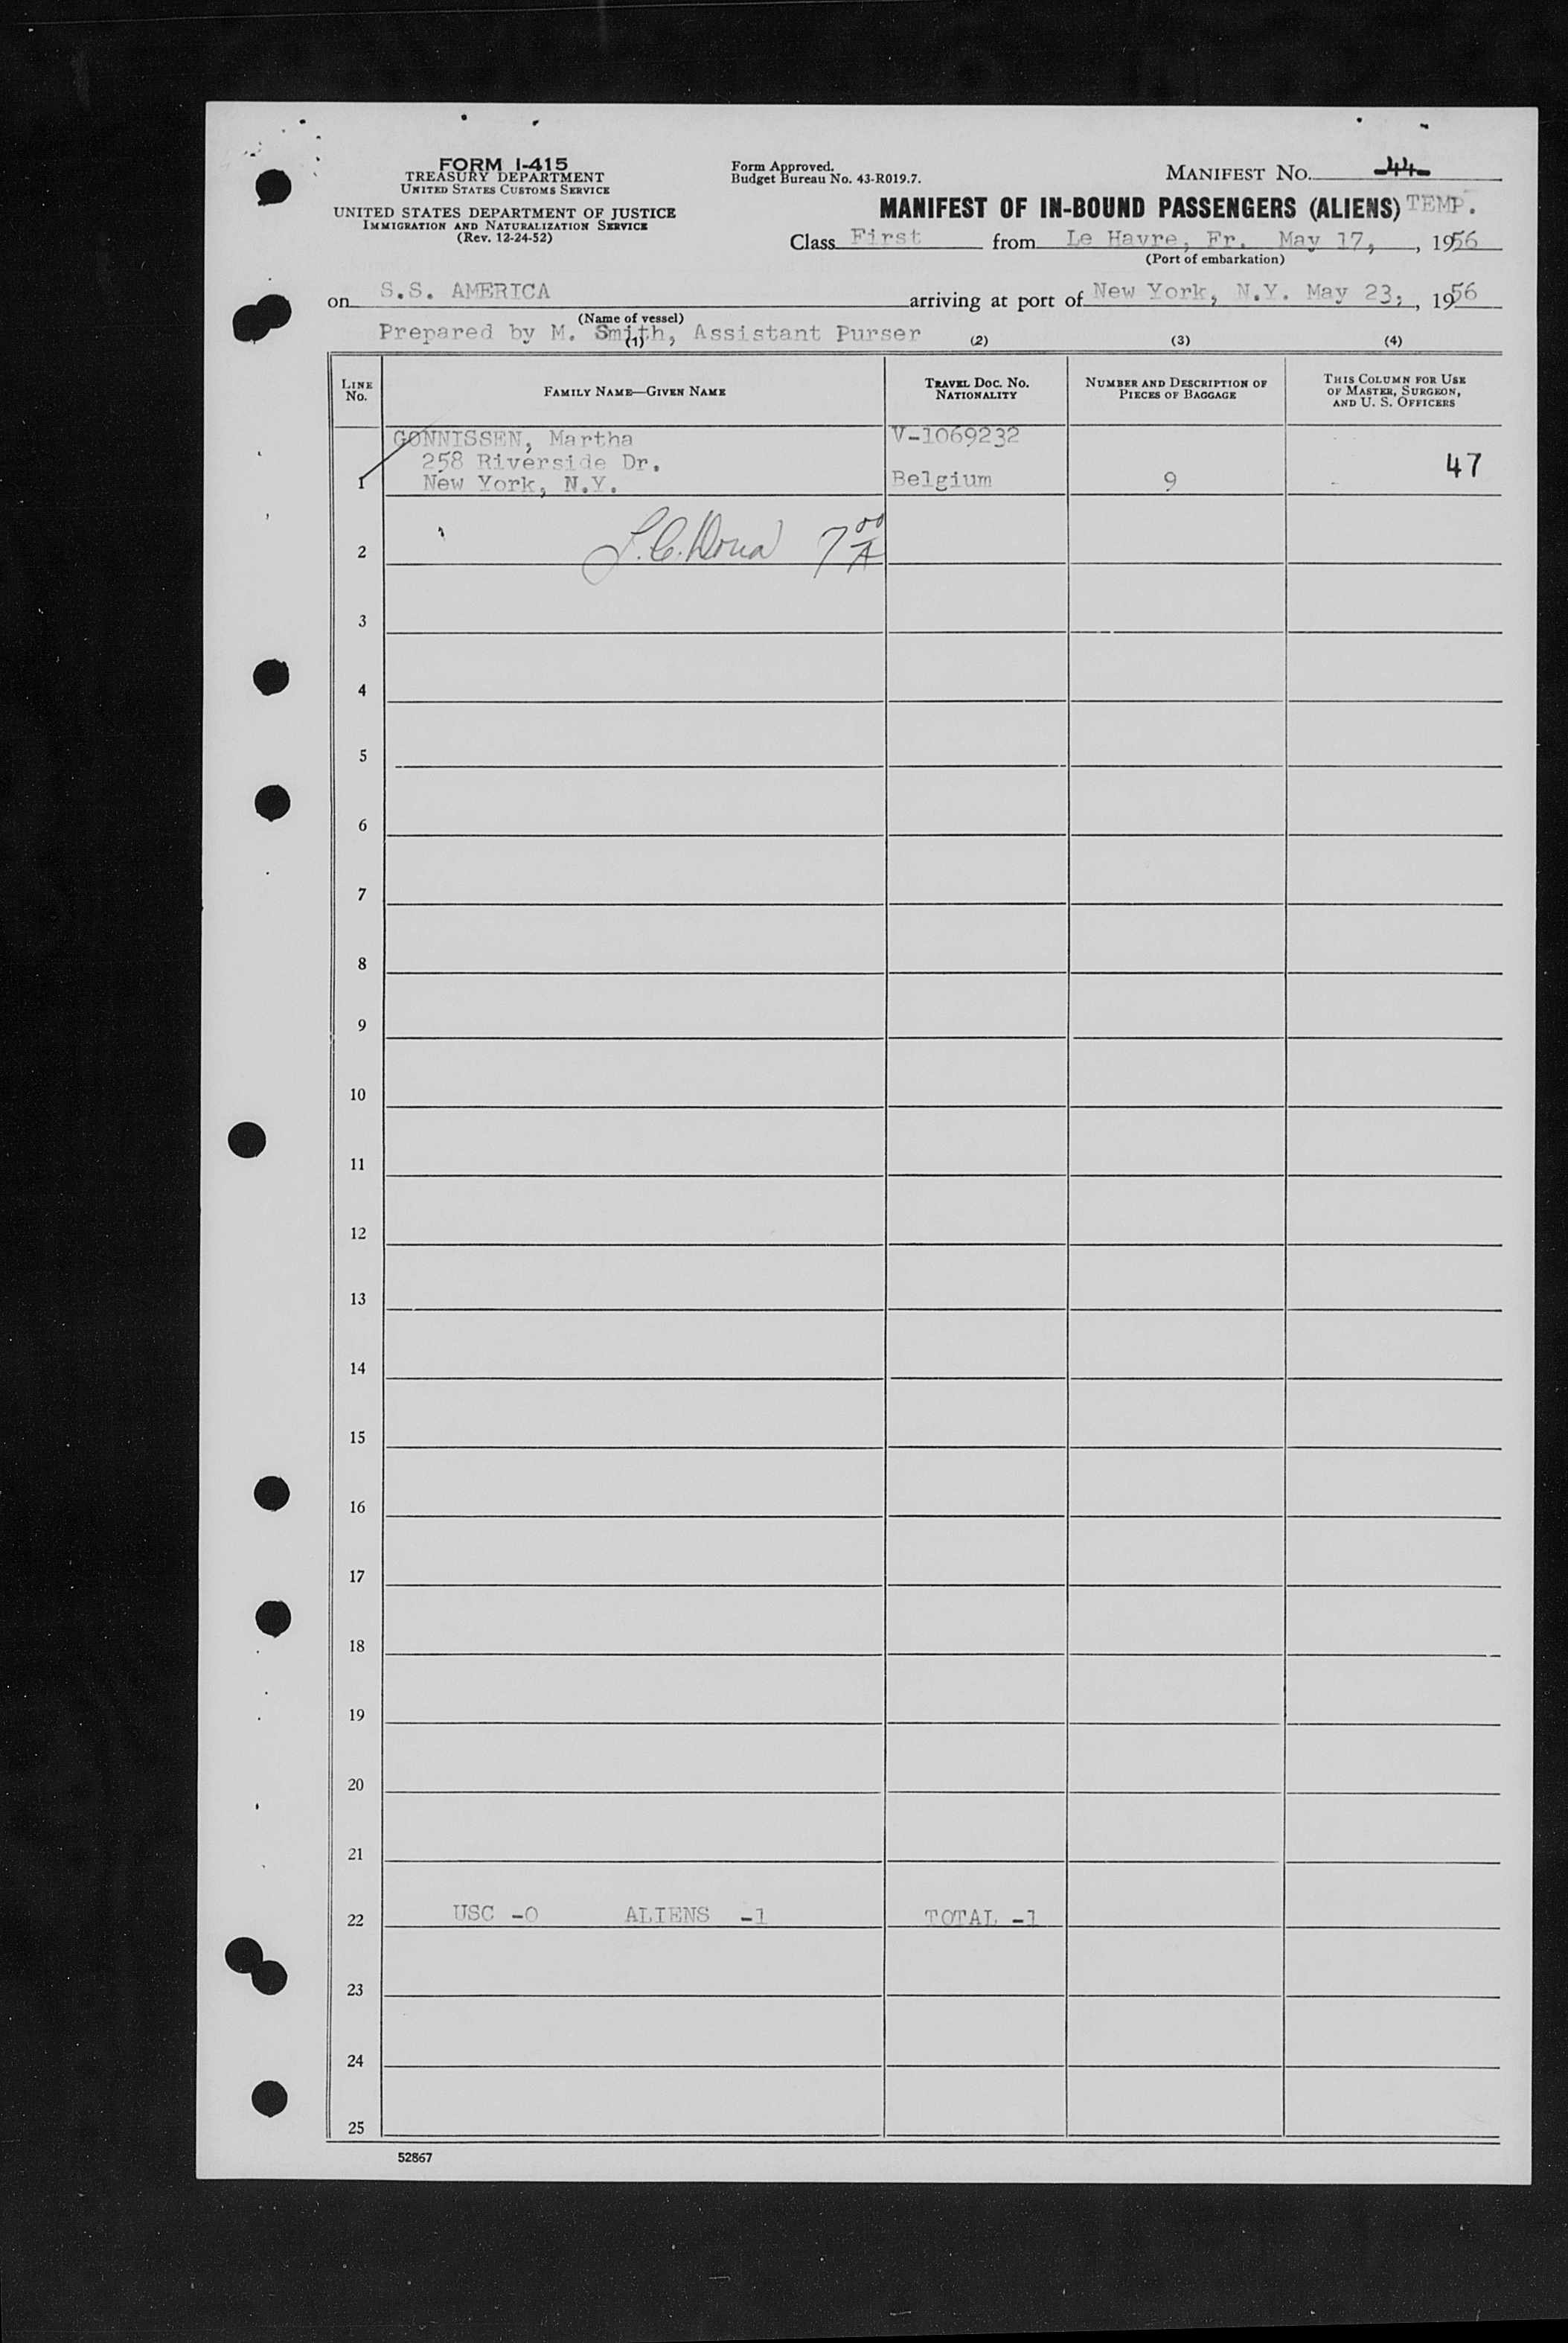 FORM I-415
TREASURY DEPARTMENT
UNITED STATES CUSTOMS SERVICE
UNITED STATES DEPARTMENT OF JUSTICE
IMMIGRATION AND NATURALIZATION SERVICE
(Rev. 12-24-52)
Form Approved.
Budget Bureau No. 43-R019.7.
MANIFEST NO. 44
MANIFEST OF IN-BOUND PASSENGERS (ALIENS) TEMP.
Class First from Le Havre, Fr. May 17, , 1956
(Port of embarkation)
on S.S. AMERICA arriving at port of New York, N.Y. May 23, , 1956
(Name of vessel)
Prepared by M. Smith, Assistant Purser
(1) (2) (3) (4)
LINE NO. FAMILY NAME—GIVEN NAME TRAVEL DOC. NO. NATIONALITY NUMBER AND DESCRIPTION OF PIECES OF BAGGAGE THIS COLUMN FOR USE OF MASTER, SURGEON, AND U. S. OFFICERS
GONNISSEN, Martha V-1069232
258 Riverside Dr. 47
1 New York, N.Y. Belgium 9
2 7 00 A
3
4
5
6
7
8
9
10
11
12
13
14
15
16
17
18
19
20
21
22 USC -0 ALIENS -1 TOTAL -1
23
24
25
52867